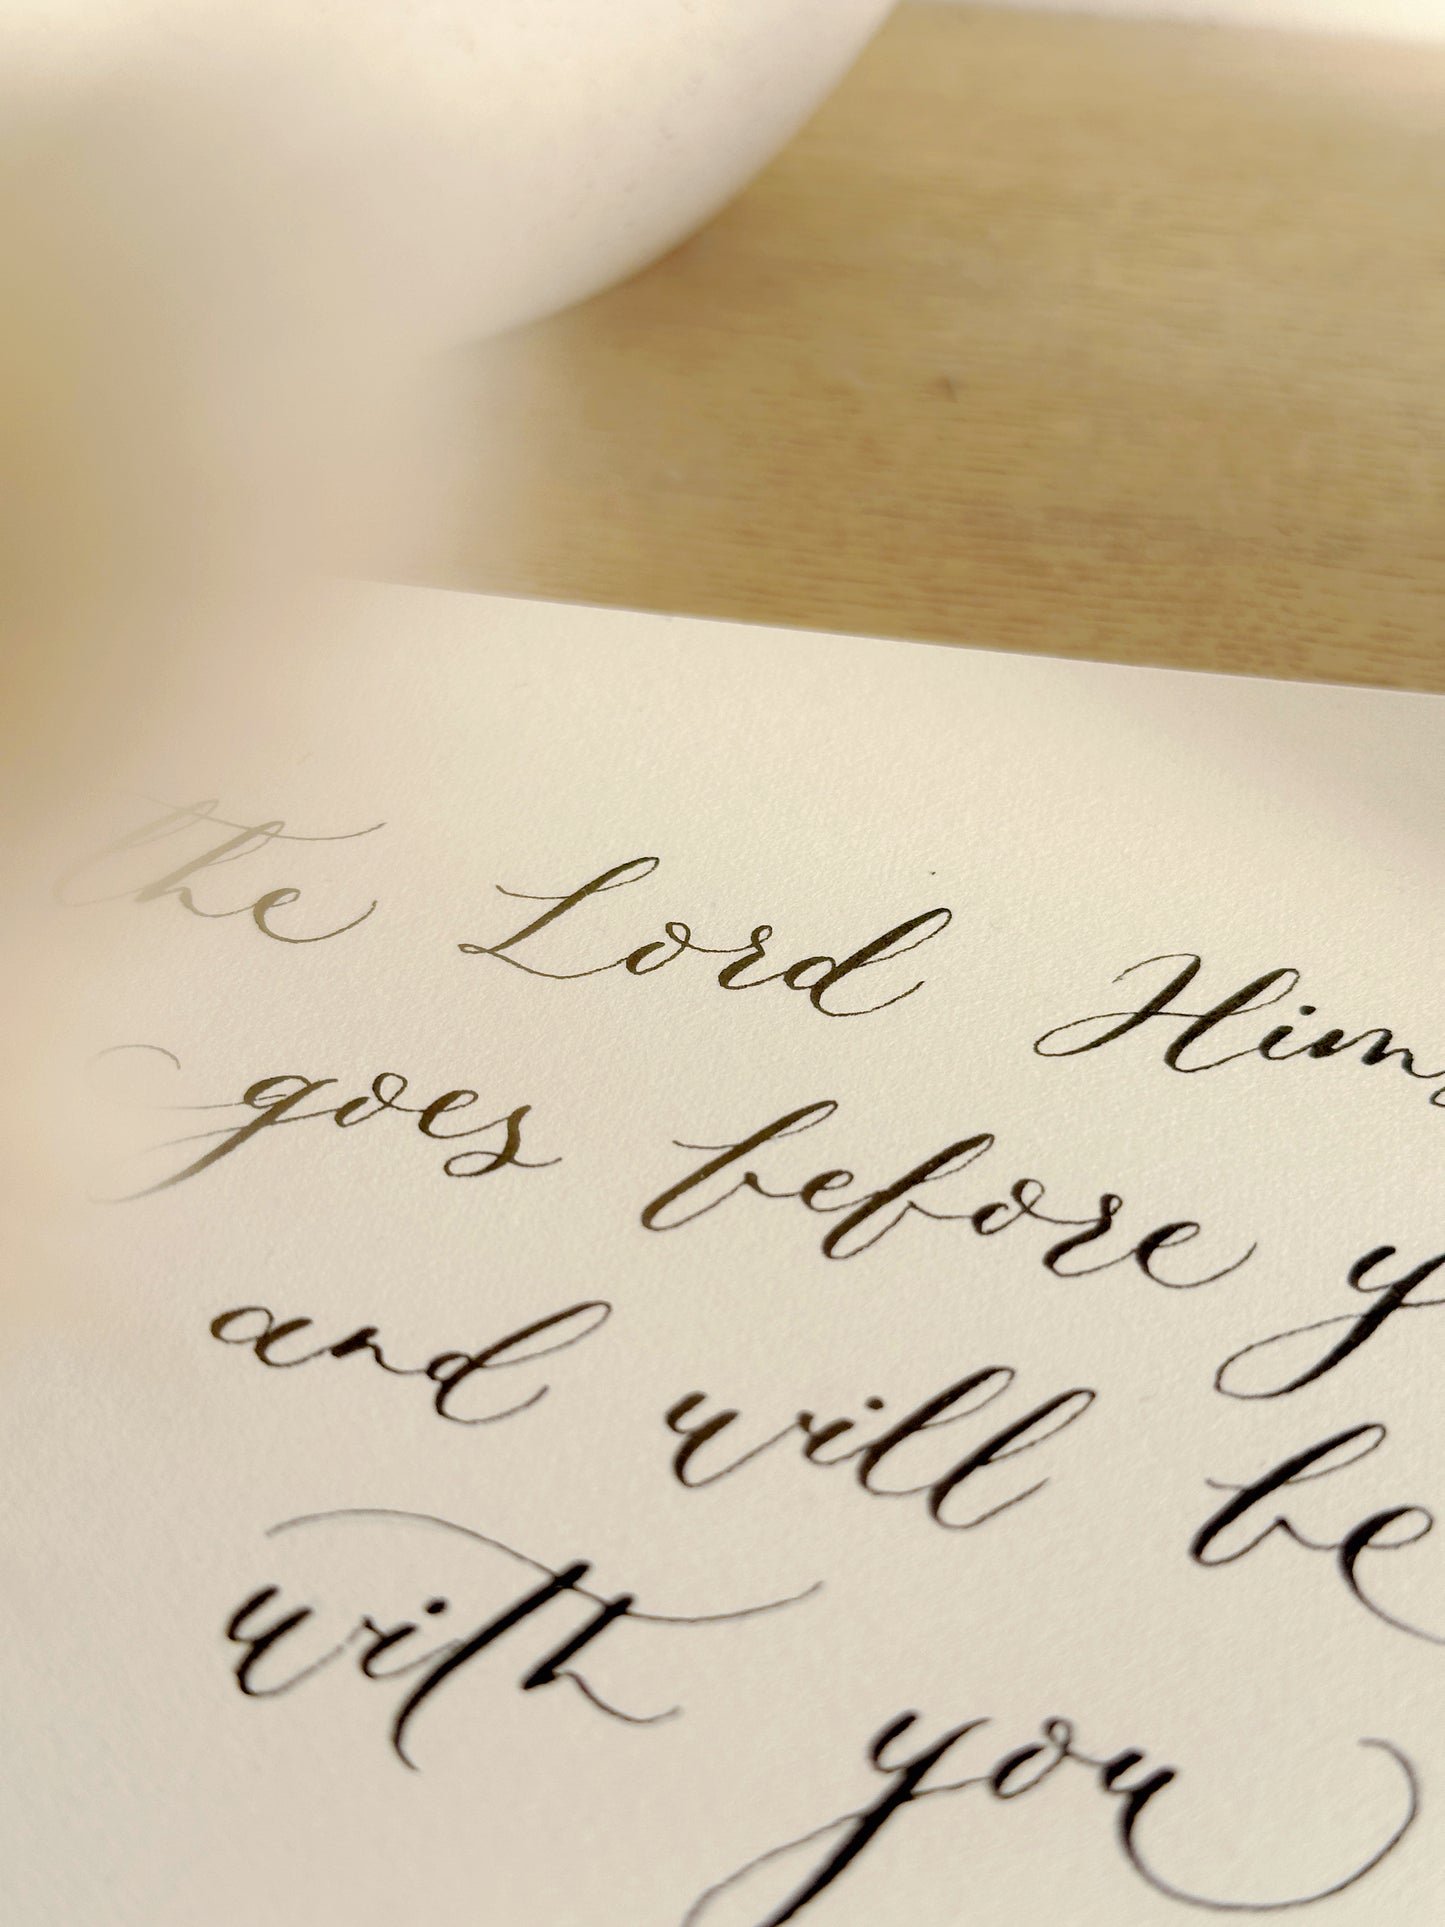 the Lord Him
goes before y
and will be
with you